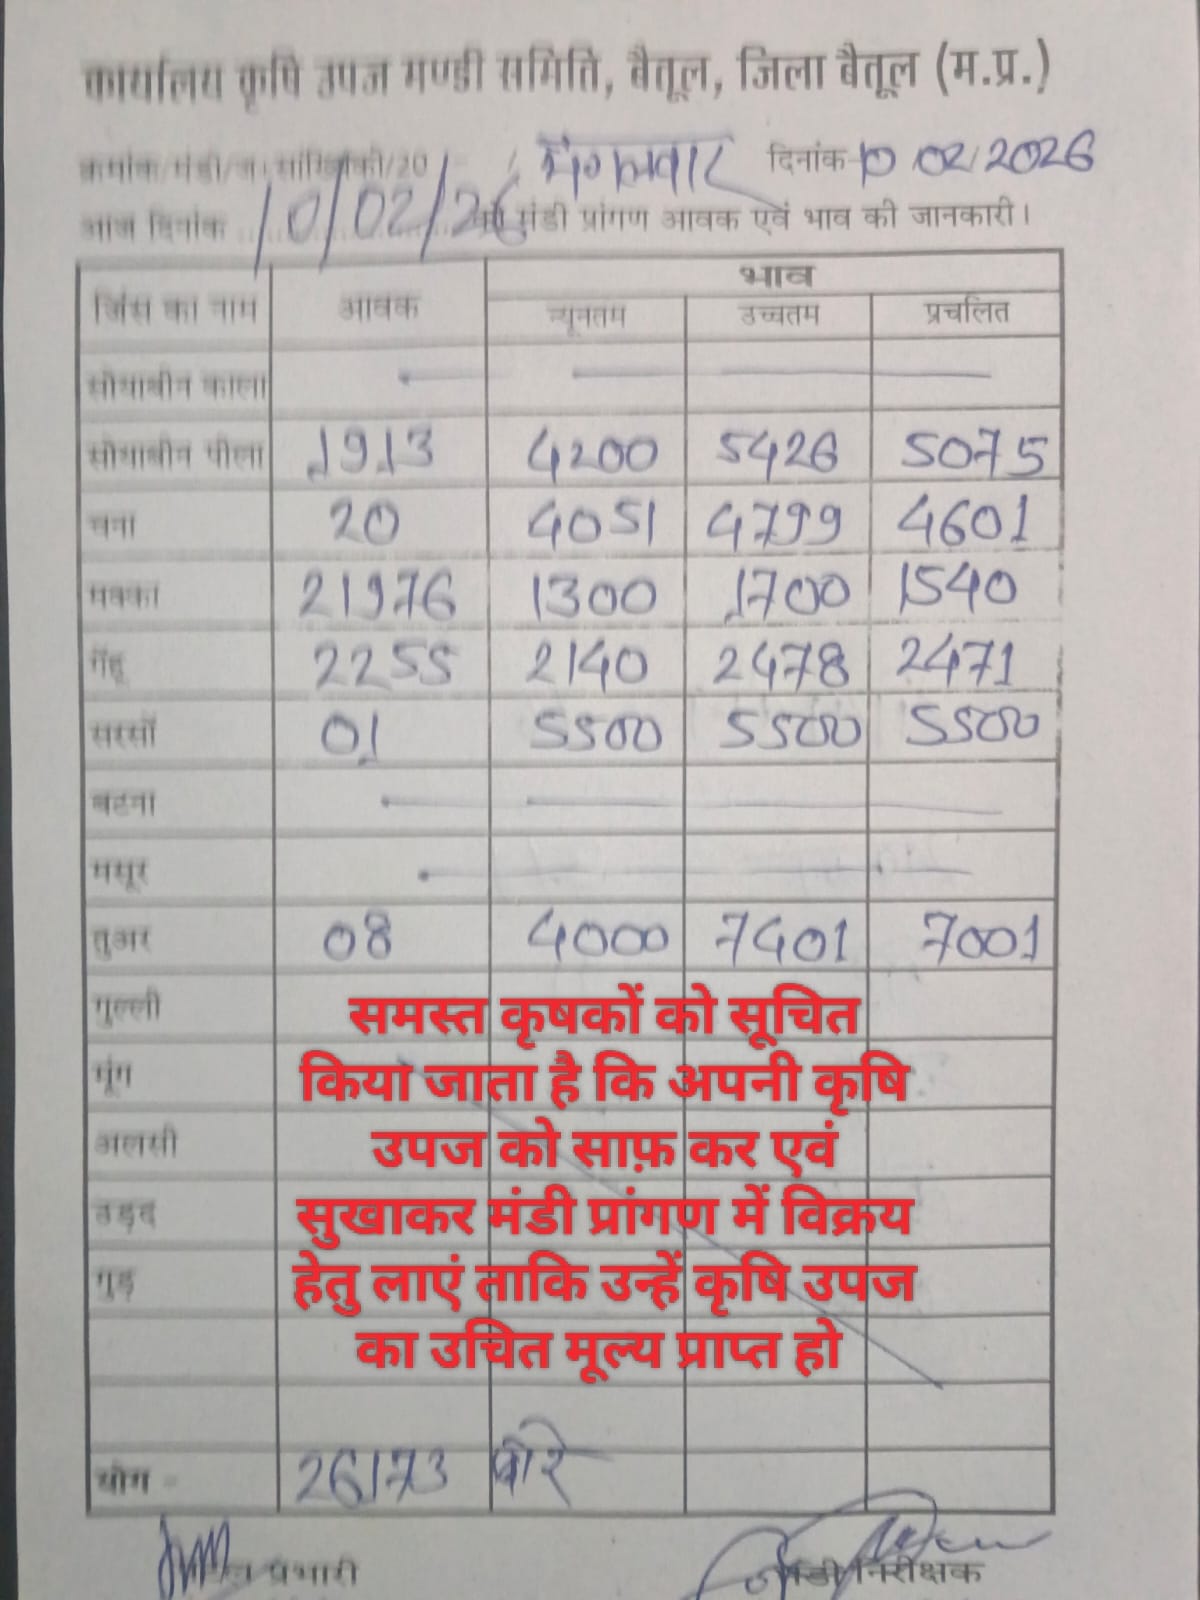 कार्यालय कृषि उपज मण्डी समिति, बैतूल, जिला बैतूल (म.प्र.)
क्रमांक/मंडी/ज.सांख्यिकी/20 मंगलवार दिनांक 10/02/2026
आज दिनांक 10/02/26 को मंडी प्रांगण आवक एवं भाव की जानकारी।
जिंस का नाम आवक भाव
न्यूनतम उच्चतम प्रचलित
सोयाबीन काला
सोयाबीन पीला 1913 4200 5426 5075
चना 20 4051 4799 4601
मक्का 21976 1300 1700 1540
गेंहू 2255 2140 2478 2471
सरसों 01 5500 5500 5500
बटना
मसूर
तुअर 08 4000 7401 7001
गुल्ली
मूंग
अलसी
उड़द
गुड़
समस्त कृषकों को सूचित
किया जाता है कि अपनी कृषि
उपज को साफ़ कर एवं
सुखाकर मंडी प्रांगण में विक्रय
हेतु लाएं ताकि उन्हें कृषि उपज
का उचित मूल्य प्राप्त हो
योग - 26173 बोरे
प्रभारी मंडी निरीक्षक